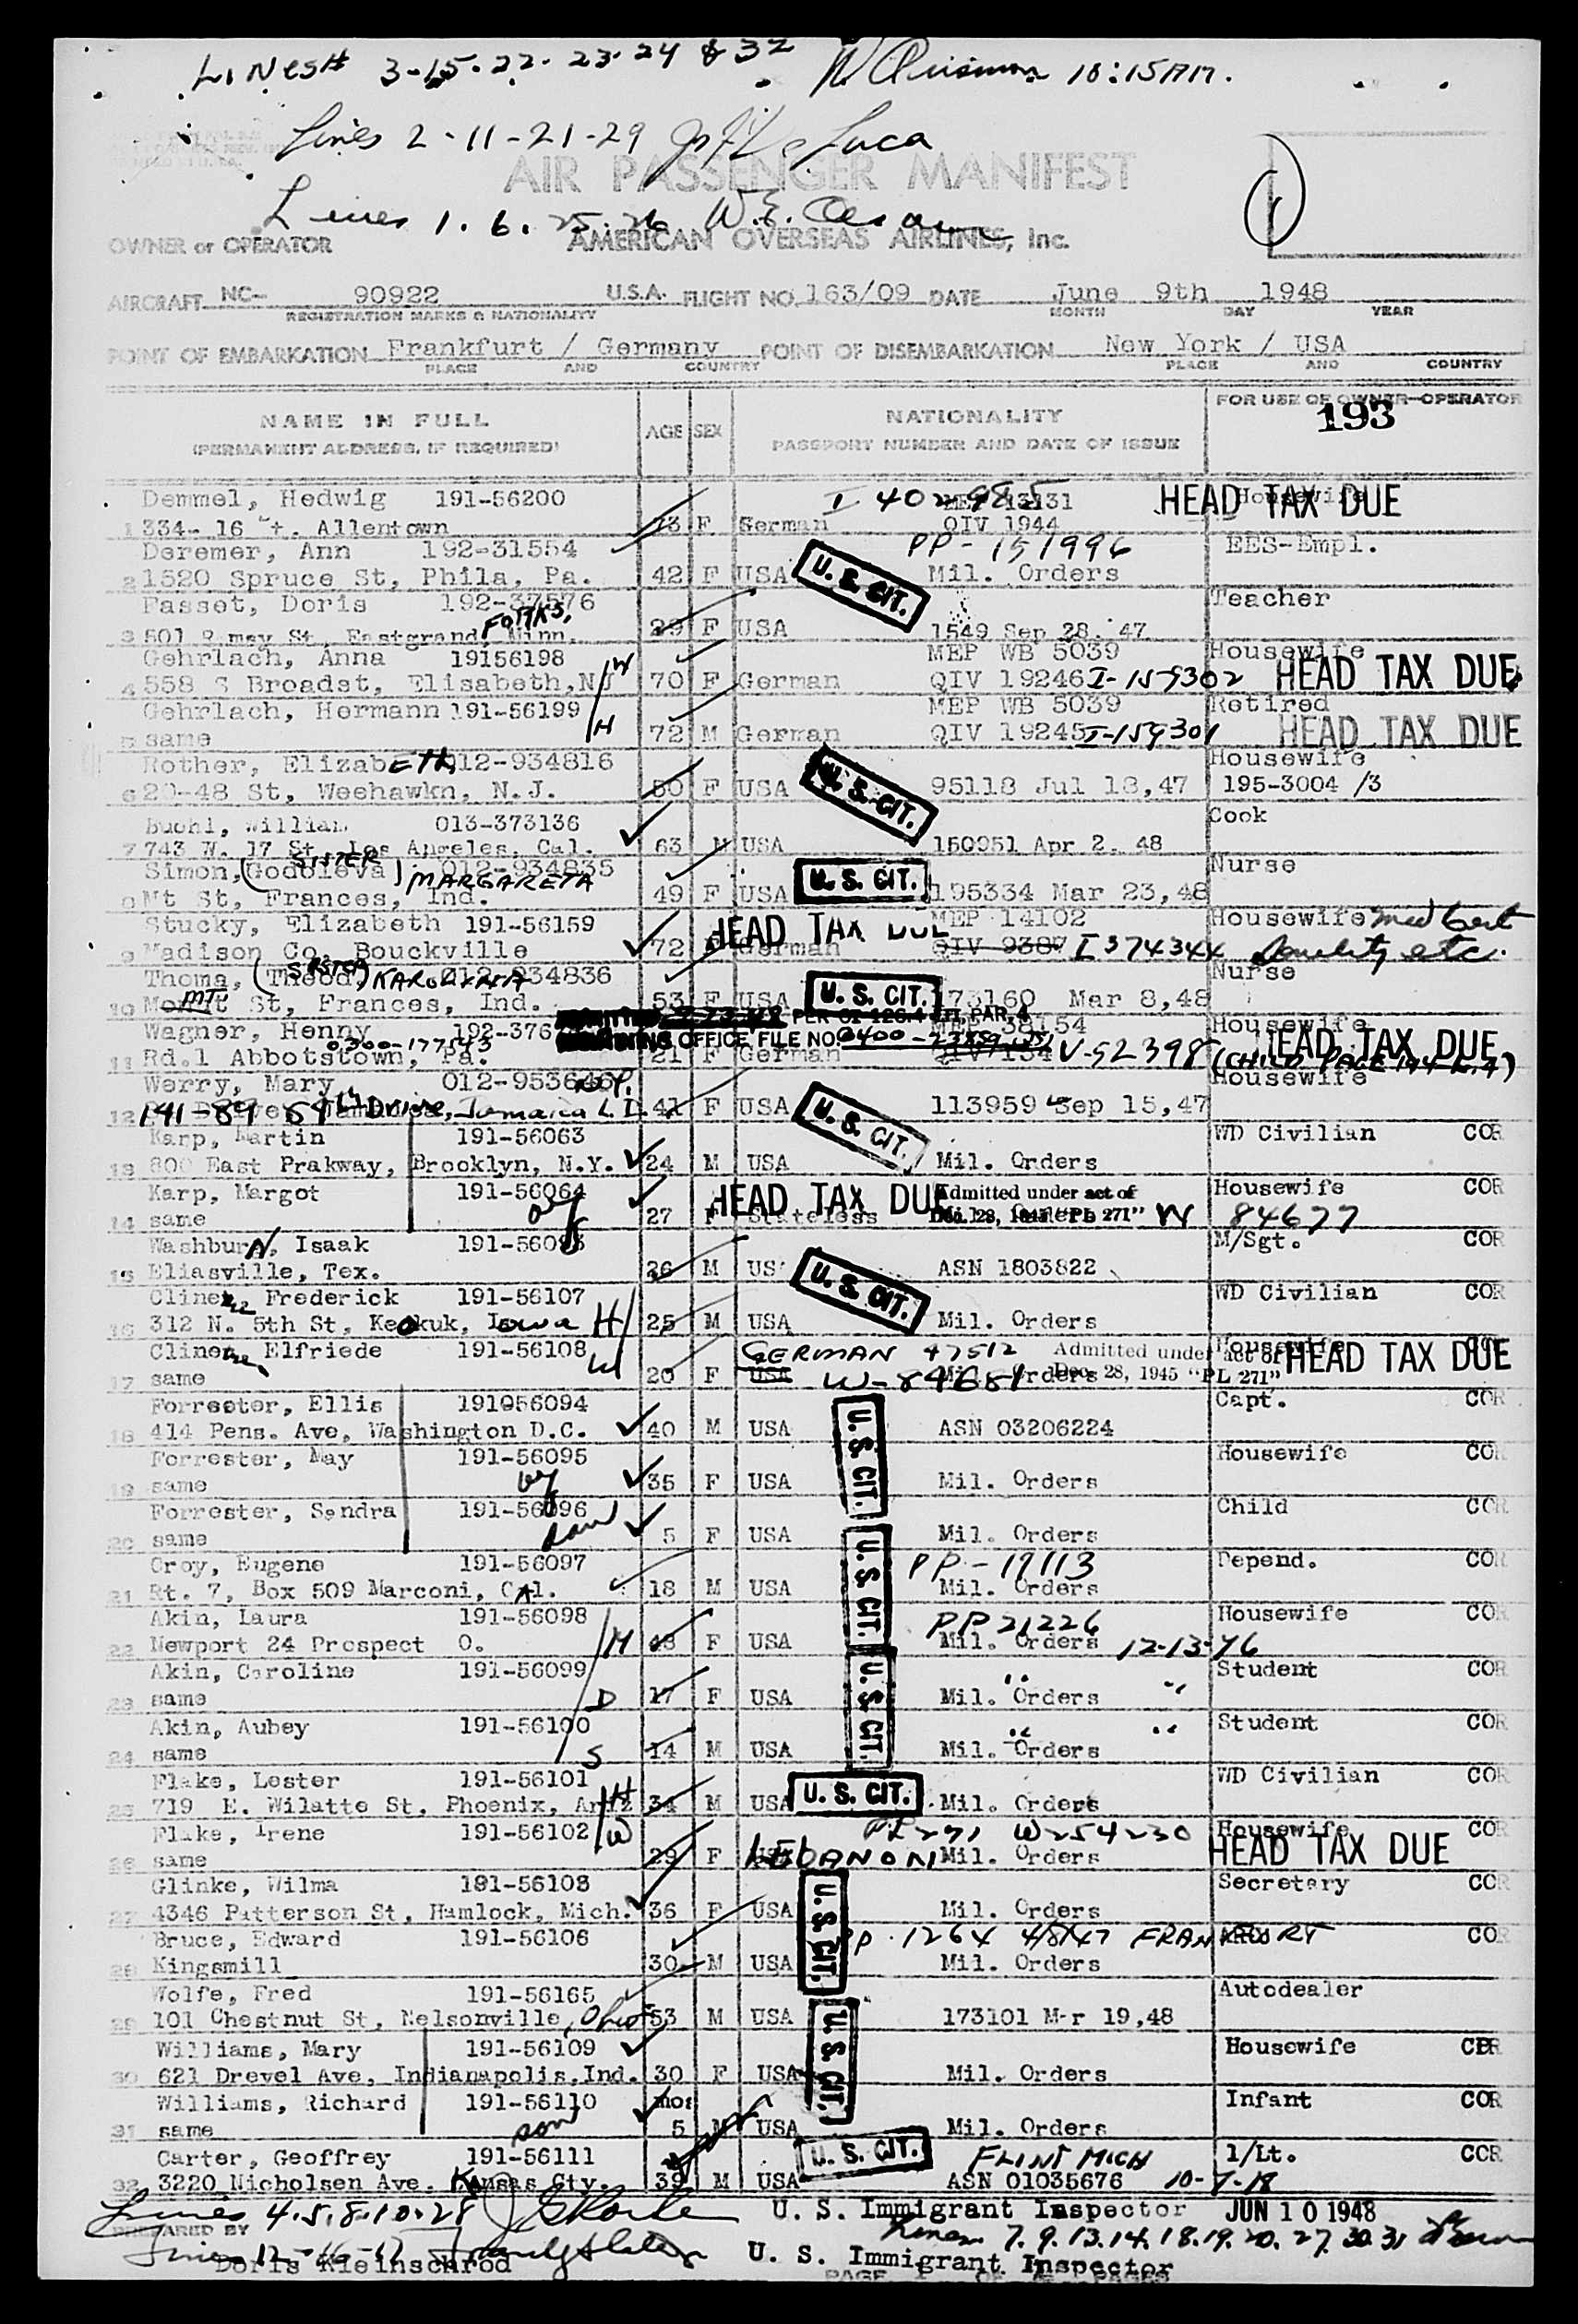 LINES# 3-15-22-23-24 & 32 10:15AM.
Lines 2-11-21-29 Luca
AIR PASSENGER MANIFEST
Lines 1. 6. 25. 26 W.E.
OWNER or OPERATOR AMERICAN OVERSEAS AIRLINES, Inc.
AIRCRAFT NC- 90922 U.S.A. FLIGHT NO. 163/09 DATE June 9th 1948
REGISTRATION MARKS & NATIONALITY MONTH DAY YEAR
POINT OF EMBARKATION Frankfurt / Germany POINT OF DISEMBARKATION New York / USA
PLACE AND COUNTRY PLACE AND COUNTRY
NAME IN FULL AGE SEX NATIONALITY FOR USE OF OWNER-OPERATOR
(PERMANENT ADDRESS, IF REQUIRED) PASSPORT NUMBER AND DATE OF ISSUE 193
Demmel, Hedwig 191-56200 I 402985 13131 Housewife HEAD TAX DUE
1 334- 16 St. Allentown 73 F German QIV 1944
Deremer, Ann 192-31554 PP-151996 EES-Empl.
2 1520 Spruce St, Phila, Pa. 42 F USA U. S. CIT. Mil. Orders
Fasset, Doris 192-37576 Teacher
3 501 St, Eastgrand FORKS, Minn. 29 F USA 1549 Sep 28, 47
Gehrlach, Anna 19156198 MEP WB 5039 Housewife
4 558 S Broadst, Elisabeth, NJ W 70 F German QIV 19246 I-159302 HEAD TAX DUE
Gehrlach, Hermann 191-56199 MEP WB 5039 Retired
5 same H 72 M German QIV 19245 I-159301 HEAD TAX DUE
Rother, ElizabETH 012-934816 Housewife
6 20-48 St, Weehawkn, N.J. 50 F USA U. S. CIT. 95118 Jul 18,47 195-3004 /3
Buchl, William 013-373136 Cook
7 743 W. 17 St, Los Angeles, Cal. 63 M USA 150951 Apr 2, 48
Simon, (SISTER Godoleva) MARGARETA 012-934835 Nurse
8 Mt St, Frances, Ind. 49 F USA U. S. CIT. 195334 Mar 23,48
Stucky, Elizabeth 191-56159 HEAD TAX DUE MEP 14102 Housewife med Cert
9 Madison Co, Bouckville 72 F German QIV 9387 I 374344 Senility etc.
Thoma, (SISTER Theod) KAROLINA 012-934836 Nurse
10 Mount MT St, Frances, Ind. 53 F USA U. S. CIT. 173160 Mar 8,48
Wagner, Henny 192-376 MEP 38154 Housewife HEAD TAX DUE
0300-177543 OFFICE FILE NO. 0400-
11 Rd.1 Abbotstown, Pa. 21 F German V-52398 (CHILD PAGE 194 L.4)
Werry, Mary 012-953646 Housewife
12 141-89 84th Drive, Jamaica L.I. 41 F USA U. S. CIT. 113959 Sep 15,47
Karp, Martin 191-56063 WD Civilian COR
13 800 East Prakway, Brooklyn, N.Y. 24 M USA Mil. Orders
Karp, Margot 191-56064 HEAD TAX DUE Admitted under act of Housewife COR
14 same 27 F Stateless Dec. 28, 1945 "PL 271" W 84677
WashburN, Isaak 191-56093 M/Sgt. COR
15 Eliasville, Tex. 26 M US U. S. CIT. ASN 1803822
Cline, Frederick 191-56107 WD Civilian COR
16 312 N. 5th St, Keokuk, Iowa H 25 M USA Mil. Orders
Cline, Elfriede 191-56108 W GERMAN 47512 Admitted under act of Housewife HEAD TAX DUE
17 same 20 F USA W-84681 Mil. Orders Dec. 28, 1945 "PL 271"
Forrester, Ellis 191056094 Capt. COR
18 414 Pens. Ave, Washington D.C. 40 M USA U. S. CIT. ASN 03206224
Forrester, May 191-56095 Housewife COR
19 same 35 F USA Mil. Orders
Forrester, Sandra 191-56096 Child COR
20 same 5 F USA Mil. Orders
Croy, Eugene 191-56097 PP-19113 Depend. COR
21 Rt. 7, Box 509 Marconi, CAl. 18 M USA U. S. CIT. Mil. Orders
Akin, Laura 191-56098 PP 21226 Housewife COR
22 Newport 24 Prospect O. M 43 F USA Mil. Orders 12-13-46
Akin, Caroline 191-56099 " " Student COR
23 same D 17 F USA U. S. CIT. Mil. Orders
Akin, Aubey 191-56100 " " Student COR
24 same S 14 M USA Mil. Orders
Flake, Lester 191-56101 WD Civilian COR
25 719 E. Wilatto St, Phoenix, Ariz H 34 M USA U. S. CIT. Mil. Orders
Flake, Irene 191-56102 W PL 271 W254230 Housewife COR
26 same 29 F LEBANON Mil. Orders HEAD TAX DUE
Glinke, Wilma 191-56103 Secretary COR
27 4346 Patterson St, Hamlock, Mich. 36 F USA U. S. CIT. Mil. Orders
Bruce, Edward 191-56106 PP. 1264 4/8/47 FRANKFURT COR
28 Kingsmill 30 M USA Mil. Orders
Wolfe, Fred 191-56165 Autodealer
29 101 Chestnut St, Nelsonville, Ohio 53 M USA U. S. CIT. 173101 Mar 19,48
Williams, Mary 191-56109 Housewife COR
30 621 Drevel Ave, Indianapolis, Ind. 30 F USA Mil. Orders
Williams, Richard 191-56110 mos Infant COR
31 same son 5 M USA Mil. Orders
Carter, Geoffrey 191-56111 U. S. CIT. FLINT MICH 1/Lt. COR
32 3220 Nicholsen Ave, Kansas Cty. 39 M USA ASN 01035676 10-7-18
Lines 4.5.8.10.28 U. S. Immigrant Inspector JUN 10 1948
PREPARED BY Lines 7. 9. 13. 14. 18. 19. 20. 27. 30. 31
Lines 12-16-17 U. S. Immigrant Inspector
Doris Kleinschrod PAGE OF PAGES